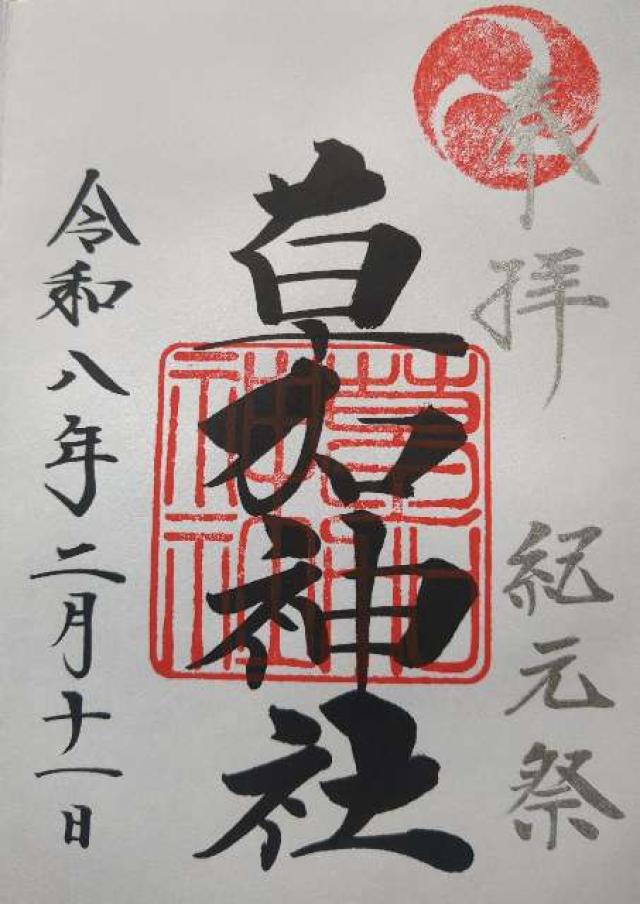 奉拝 紀元祭
草加神社
草加
神社
令和八年二月十一日